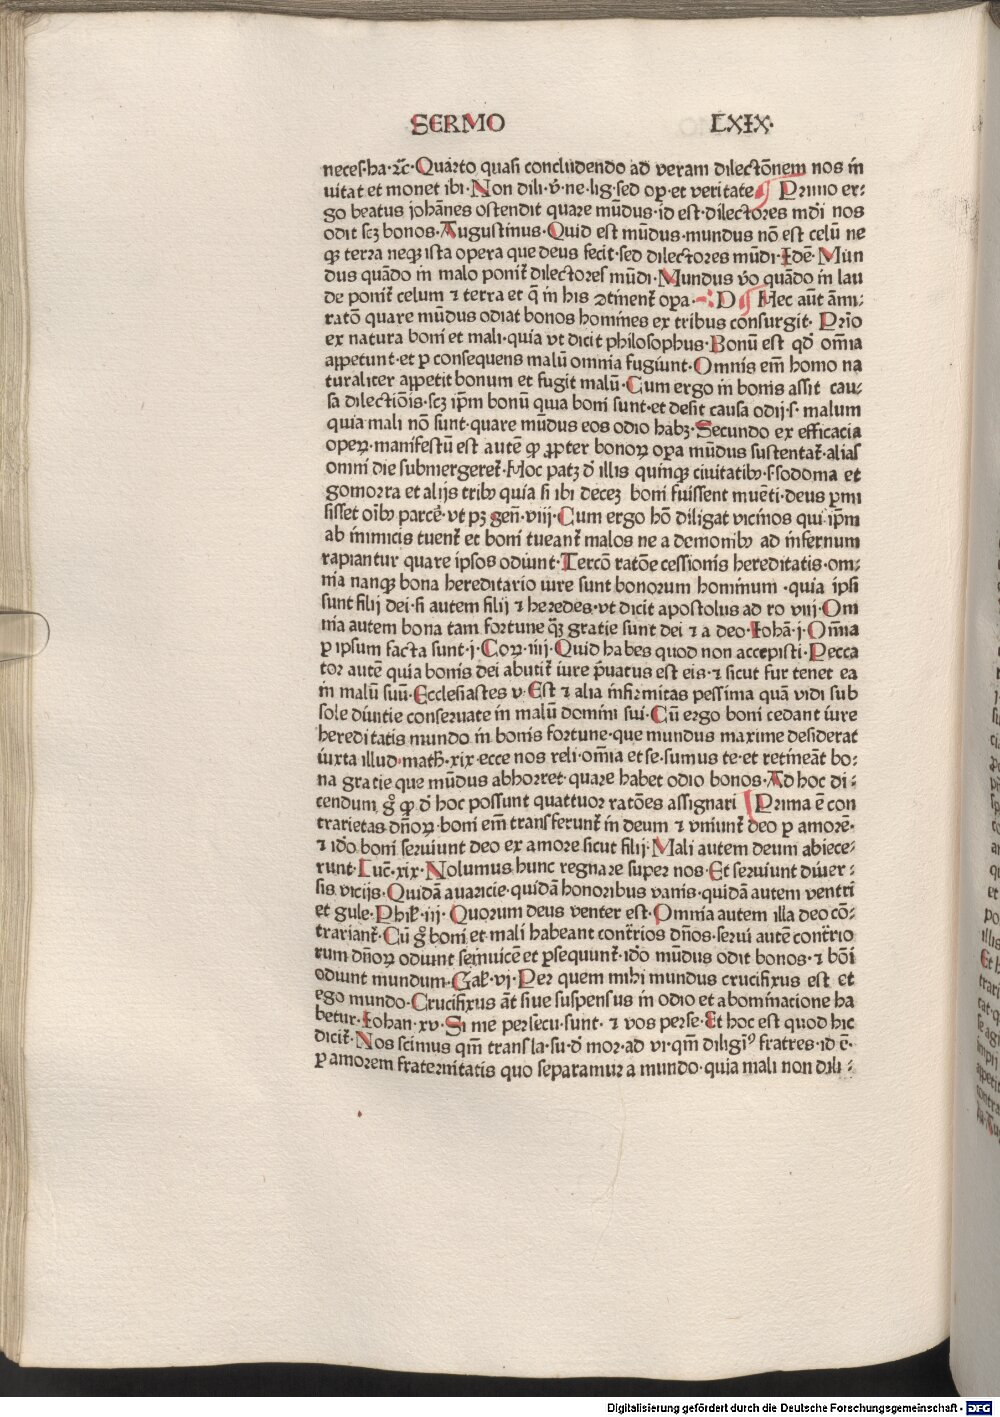 SERMO LXIX·
neces·ha·⁊c̃·Quarto quasi concludendo ad veram dilectõnem nos in̄
uitat et monet ibi·Non dili·v̾·ne·lig·sed op̲·et veritate Primo er-
go beatus johānes ostendit quare mūdus·id est·dilectores mdi nos
odit scꝫ bonos·Augustinus·Quid est mūdus·mundus nō est celū ne
qꝫ terra neqꝫ ista opera que deus fecit·sed dilectores mūdi·Idē·Mun
dus quādo in malo ponit̃ dilectores mūdi·Mundus v̾o quādo in lau
de ponit̃ celum ⁊ terra et q̄ in his ↄtinent̃ oꝑa·D Hec aūt āmi-
ratō quare mūdus odiat bonos homines ex tribus consurgit· Prio
ex natura boni et mali·quia vt dicit philosophus·Bonū est qđ om̄ia
appetunt·et ꝑ consequens malū omnia fugiunt·Omnis em̄ homo na
turaliter appetit bonum et fugit malū·Cum ergo in bonis assit cau-
sa dilectiōis·scꝫ ip̄m bonū quia boni sunt·et desit causa odij·s· malum
quia mali nō sunt·quare mūdus eos odio habꝫ·Secundo ex efficacia
operꝝ·manifestū est autē ꝙ ꝓpter bonoꝝ oꝑa mūdus sustentat̃·alias
omni die submergeret̃·Hoc patꝫ đ illis quinqꝫ ciuitatibꝰ·s·sodoma et
gomorra et alijs tribꝰ quia si ibi deceꝫ boni fuissent inuēti·deus ꝑmi
sisset oībꝰ parcē·vt pꝫ gen̄·viij·Cum ergo hō diligat vicinos qui ip̄m
ab inimicis tuent̃ et boni tueant̃ malos ne a demonibꝰ ad infernum
rapiantur quare ipsos odiunt·Tercō ratōe cessionis hereditatis·om-
nia nanqꝫ bona hereditario iure sunt bonorum hominum ·quia ipsi
sunt filij dei·si autem filij ⁊ heredes·vt dicit apostolus ad ro viij·Om
nia autem bona tam fortune q̄ꝫ gratie sunt dei ⁊ a deo·Iohā·j·Om̄ia
ꝑ ipsum facta sunt·j·Coꝝ·iiij·Quid habes quod non accepisti·Pecca
tor autē quia bonis dei abutit̃ iure p̄uatus est eis·⁊ sicut fur tenet ea
in malū suū·Ecclesiastes v·Est ⁊ alia infirmitas pessima quā vidi sub
sole diuitie conseruate in malū domini sui·Cū ergo boni cedant iure
hereditatis mundo in bonis fortune·que mundus maxime desiderat
iuxta illud·math̄·xix·ecce nos reli·om̄ia et se·sumus te·et retineāt bo-
na gratie que mūdus abhorret·quare habet odio bonos·Ad hoc di-
cendum gͦ ꝙ đ hoc possunt quattuor ratōes assignari Prima ē con
trarietas dn̄oꝝ·boni em̄ transferunt̃ in deum ⁊ vniunt̃ deo ꝑ amorē·
⁊ iđo boni seruiunt deo ex amore sicut filij·Mali autem deum abiece-
runt·Luc̄·xix·Nolumus hunc regnare super nos·Et seruiunt diuer-
sis vicijs·Quidā auaricie·quidā honoribus vanis·quidā autem ventri
et gule·Phil̃·iij·Quorum deus venter est·Omnia autem illa deo cō-
trariant̃·Cū gͦ boni et mali habeant cont̃rios dn̄os·serui autē cont̃rio
rum dn̄oꝝ odiunt se inuicē et ꝑsequunt̃·iđo mūdus odit bonos·⁊ bōi
odiunt mundum·Gal̃·vj·Per quem mihi mundus crucifixus est et
ego mundo·Crucifixus āt siue suspensus in odio et abominatione ha
betur·Iohan·xv·Si me persecu·sunt· ⁊ vos perse·Et hoc est quod hic
dicit̃·Nos scimus qm̄ transla·su·đ mor·ad vi·qm̄ diligīꝰ fratres·id ē·
ꝑ amorem fraternitatis quo separamur a mundo·quia mali non dili-
Digitalisierung gefördert durch die Deutsche Forschungsgemeinschaft - DFG